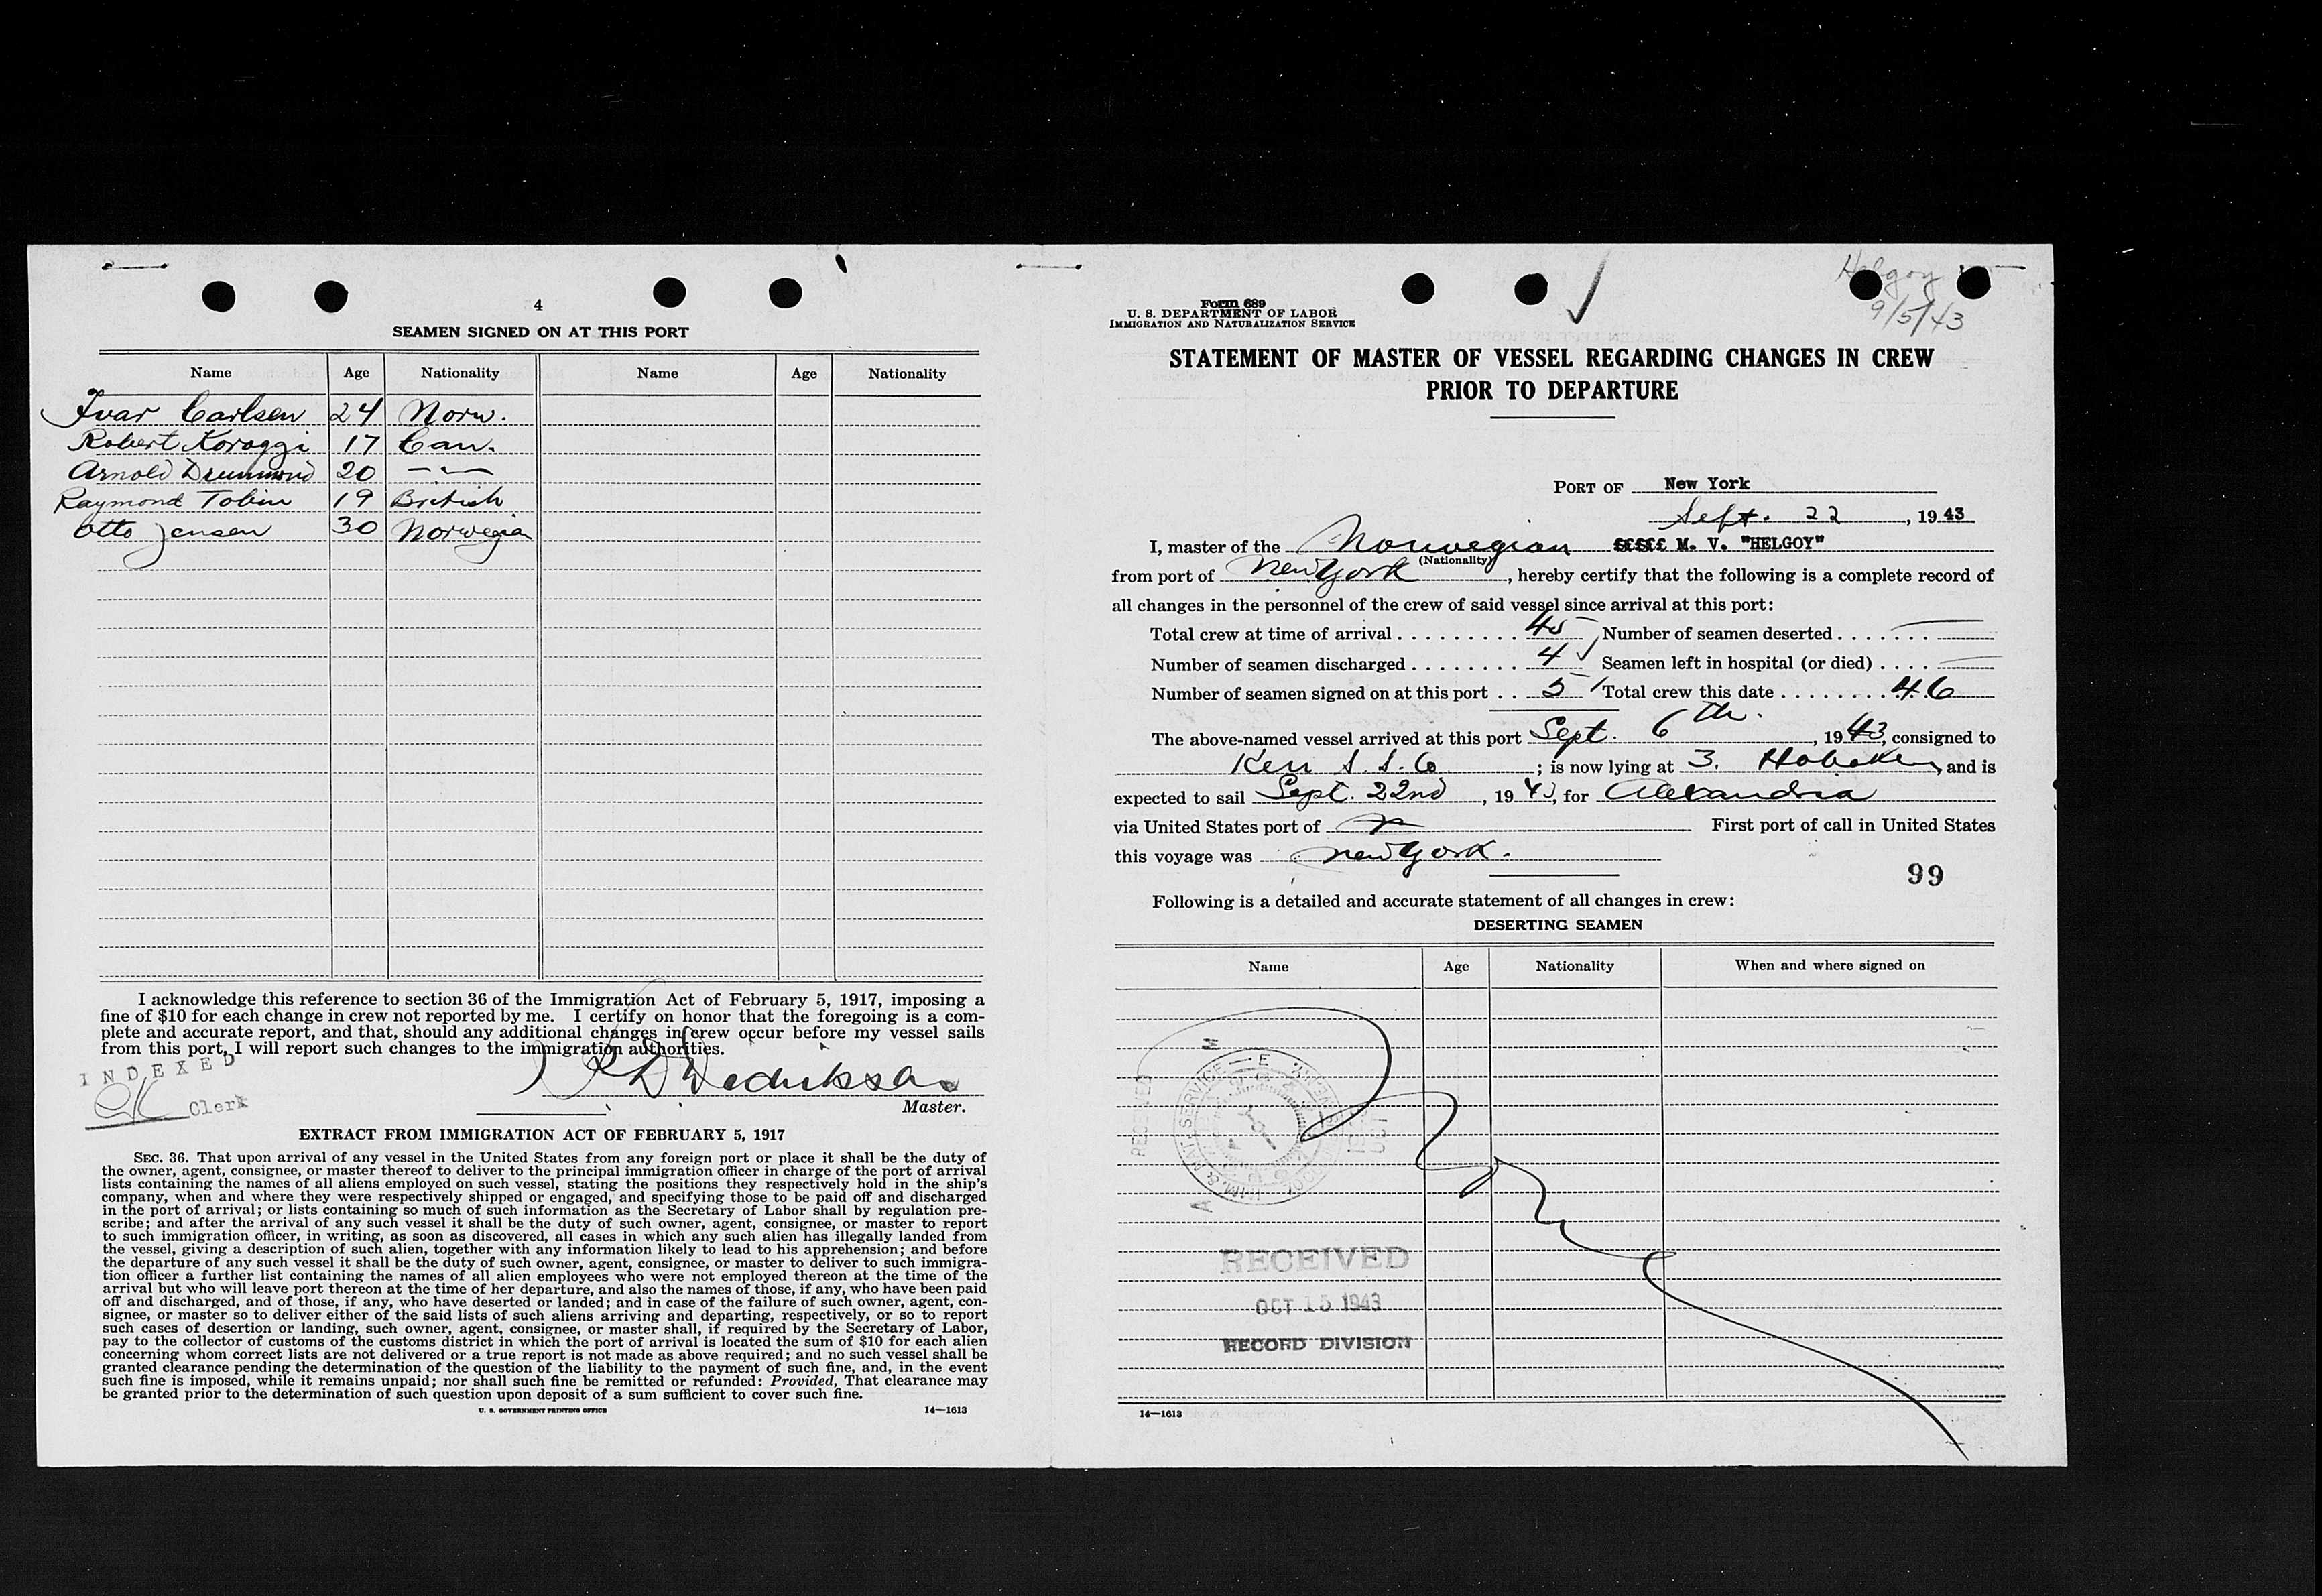 4
SEAMEN SIGNED ON AT THIS PORT
Name Age Nationality Name Age Nationality
Ivar Carlsen 24 Norw.
Robert Koroggi 17 Can.
Arnold Drummond 20 — " —
Raymond Tobin 19 British
Otto Jensen 30 Norwegian
I acknowledge this reference to section 36 of the Immigration Act of February 5, 1917, imposing a
fine of $10 for each change in crew not reported by me. I certify on honor that the foregoing is a com-
plete and accurate report, and that, should any additional changes in crew occur before my vessel sails
from this port, I will report such changes to the immigration authorities.
INDEXED
Clerk
Master.
EXTRACT FROM IMMIGRATION ACT OF FEBRUARY 5, 1917
SEC. 36. That upon arrival of any vessel in the United States from any foreign port or place it shall be the duty of
the owner, agent, consignee, or master thereof to deliver to the principal immigration officer in charge of the port of arrival
lists containing the names of all aliens employed on such vessel, stating the positions they respectively hold in the ship's
company, when and where they were respectively shipped or engaged, and specifying those to be paid off and discharged
in the port of arrival; or lists containing so much of such information as the Secretary of Labor shall by regulation pre-
scribe; and after the arrival of any such vessel it shall be the duty of such owner, agent, consignee, or master to report
to such immigration officer, in writing, as soon as discovered, all cases in which any such alien has illegally landed from
the vessel, giving a description of such alien, together with any information likely to lead to his apprehension; and before
the departure of any such vessel it shall be the duty of such owner, agent, consignee, or master to deliver to such immigra-
tion officer a further list containing the names of all alien employees who were not employed thereon at the time of the
arrival but who will leave port thereon at the time of her departure, and also the names of those, if any, who have been paid
off and discharged, and of those, if any, who have deserted or landed; and in case of the failure of such owner, agent, con-
signee, or master so to deliver either of the said lists of such aliens arriving and departing, respectively, or so to report
such cases of desertion or landing, such owner, agent, consignee, or master shall, if required by the Secretary of Labor,
pay to the collector of customs of the customs district in which the port of arrival is located the sum of $10 for each alien
concerning whom correct lists are not delivered or a true report is not made as above required; and no such vessel shall be
granted clearance pending the determination of the question of the liability to the payment of such fine, and, in the event
such fine is imposed, while it remains unpaid; nor shall such fine be remitted or refunded: Provided, That clearance may
be granted prior to the determination of such question upon deposit of a sum sufficient to cover such fine.
U. S. GOVERNMENT PRINTING OFFICE 14—1613
Helgoy
9/5/43
Form 689
U. S. DEPARTMENT OF LABOR
IMMIGRATION AND NATURALIZATION SERVICE
STATEMENT OF MASTER OF VESSEL REGARDING CHANGES IN CREW
PRIOR TO DEPARTURE
PORT OF New York
Sept. 22, 1943
I, master of the Norwegian M. V. "HELGOY"
(Nationality)
from port of New York, hereby certify that the following is a complete record of
all changes in the personnel of the crew of said vessel since arrival at this port:
Total crew at time of arrival . . . . . . . . . 45 Number of seamen deserted . . . . . . . —
Number of seamen discharged . . . . . . . . 4 ✓ Seamen left in hospital (or died) . . . . —
Number of seamen signed on at this port . . 5 Total crew this date . . . . . . . . 46
The above-named vessel arrived at this port Sept. 6th., 1943, consigned to
Kerr S. S. Co; is now lying at 3. Hoboken, and is
expected to sail Sept. 22nd, 1943, for Alexandria
via United States port of First port of call in United States
this voyage was New York.
99
Following is a detailed and accurate statement of all changes in crew:
DESERTING SEAMEN
Name Age Nationality When and where signed on
RECEIVED
OCT 15 1943
RECORD DIVISION
14—1613